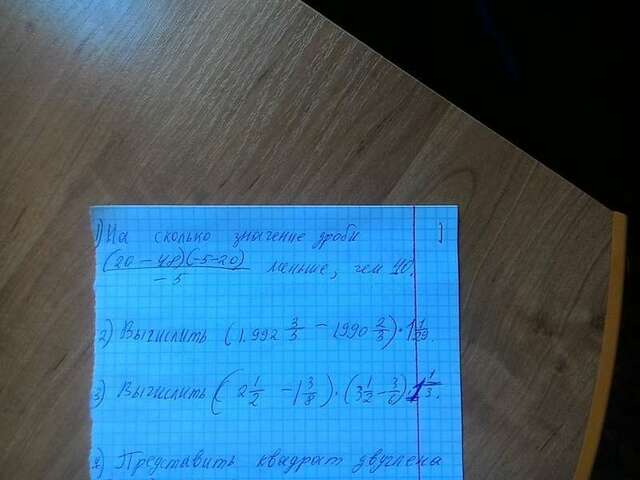 1) На сколько значение дроби
(20 - 48)(-5-20) / -5 меньше, чем 40.
2) Вычислить (1.992 3/3 - 1990 2/3) · 1 1/29.
3) Вычислить (2 1/2 - 1 3/8) · (3 1/2 - 3/6) : 1 1/3.
4) Представить квадрат двучлена